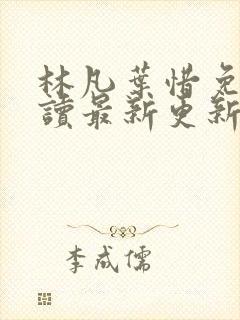 林凡葉惜免
讀最新更新
李成儒